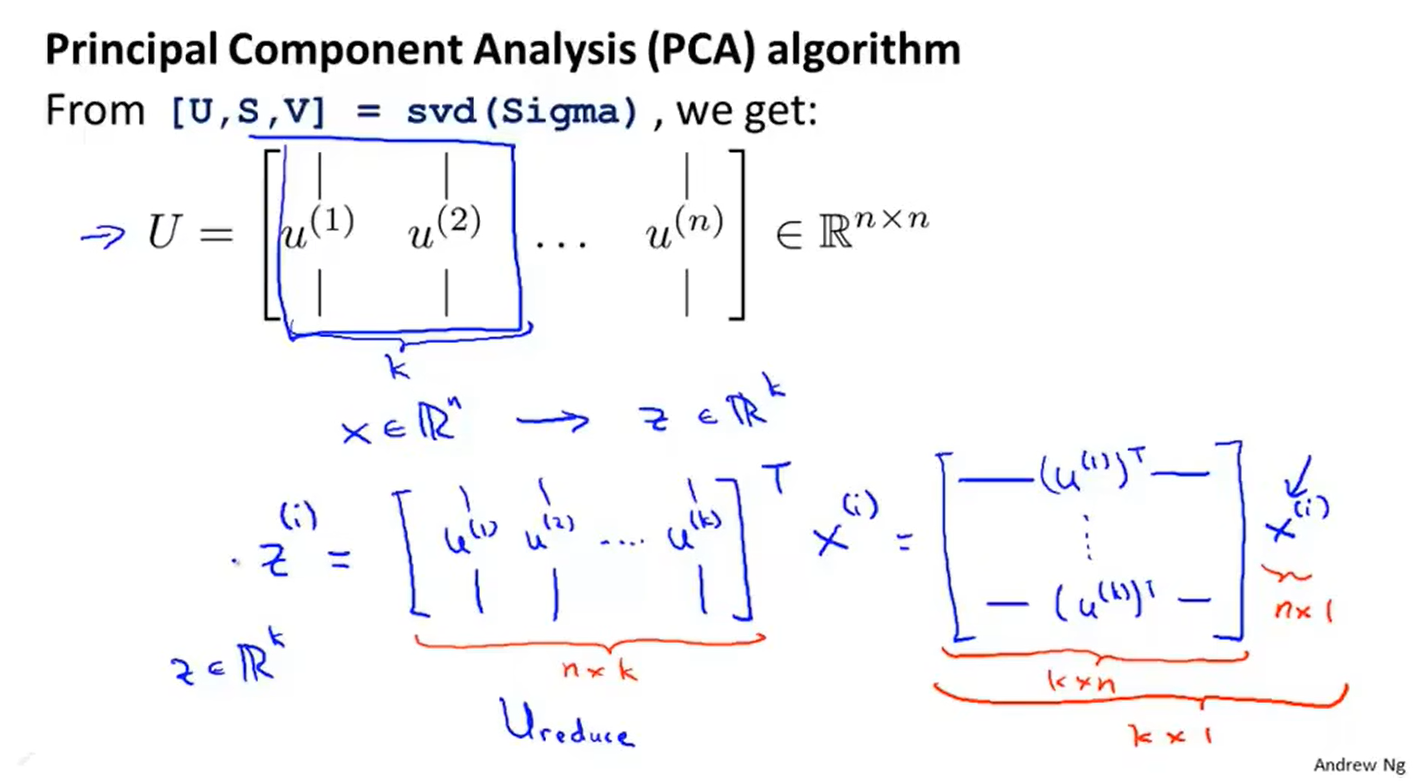 Principal Component Analysis (PCA) algorithm
From [U,S,V] = svd(Sigma) , we get:
→ U = [ u^(1) u^(2) ... u^(n) ] ∈ ℝ^{n×n}
k
x ∈ ℝ^n → z ∈ ℝ^k
z^(i) = [ u^(1) u^(2) .... u^(k) ]^T x^(i) = [ —(u^(1))^T— ⋮ —(u^(k))^T— ] x^(i)
z ∈ ℝ^k
n×k
k×n
n×1
Ureduce
k×1
Andrew Ng